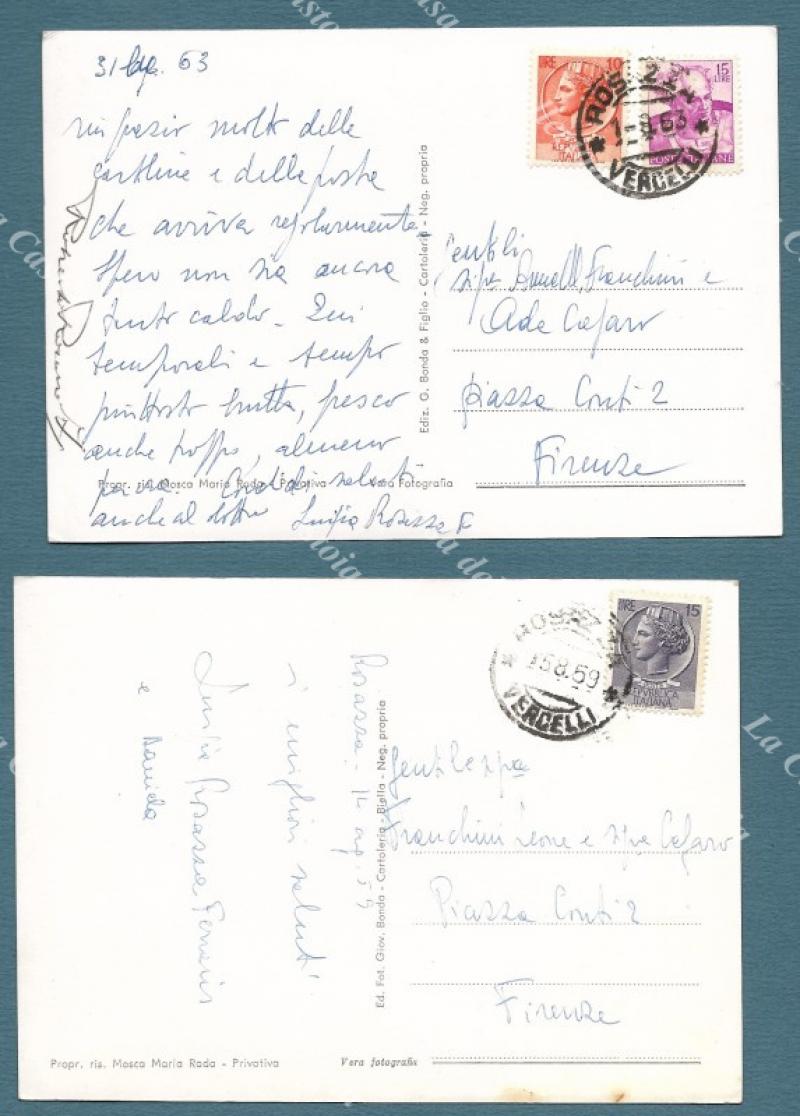 31 Lug. 63
ringrazio molto delle
cartoline e della posta
che arriva regolarmente.
Spero non sia ancora
tanto caldo. Qui
temporali e tempo
piuttosto brutto, fresco
anche troppo, almeno
per ora. Cordiali saluti
anche al dottor Luigia Rosazza F
Propr. ris. Mosca Maria Rada - Privativa Vera Fotografia
Ediz. G. Bonda & Figlio - Cartoleria - Neg. propria
LIRE 10
15 LIRE
POSTE ITALIANE
ROSAZZA
1-8.63
VERCELLI
Gentili
sig.re Franchini e
Ade Cafaro
Piazza Conti 2
Firenze
Rosazza - 14 ag. 59
i migliori saluti
Luigia Rosazza Ferraris
e
Ed. Fot. Giov. Bonda - Cartoleria - Biella - Neg. propria
LIRE 15
REPVBBLICA
ITALIANA
ROSAZZA
15.8.59
VERCELLI
Gentile sig.ra
Franchini Leone e sig.ra Cafaro
Piazza Conti 2
Firenze
Propr. ris. Mosca Maria Rada - Privativa Vera fotografia